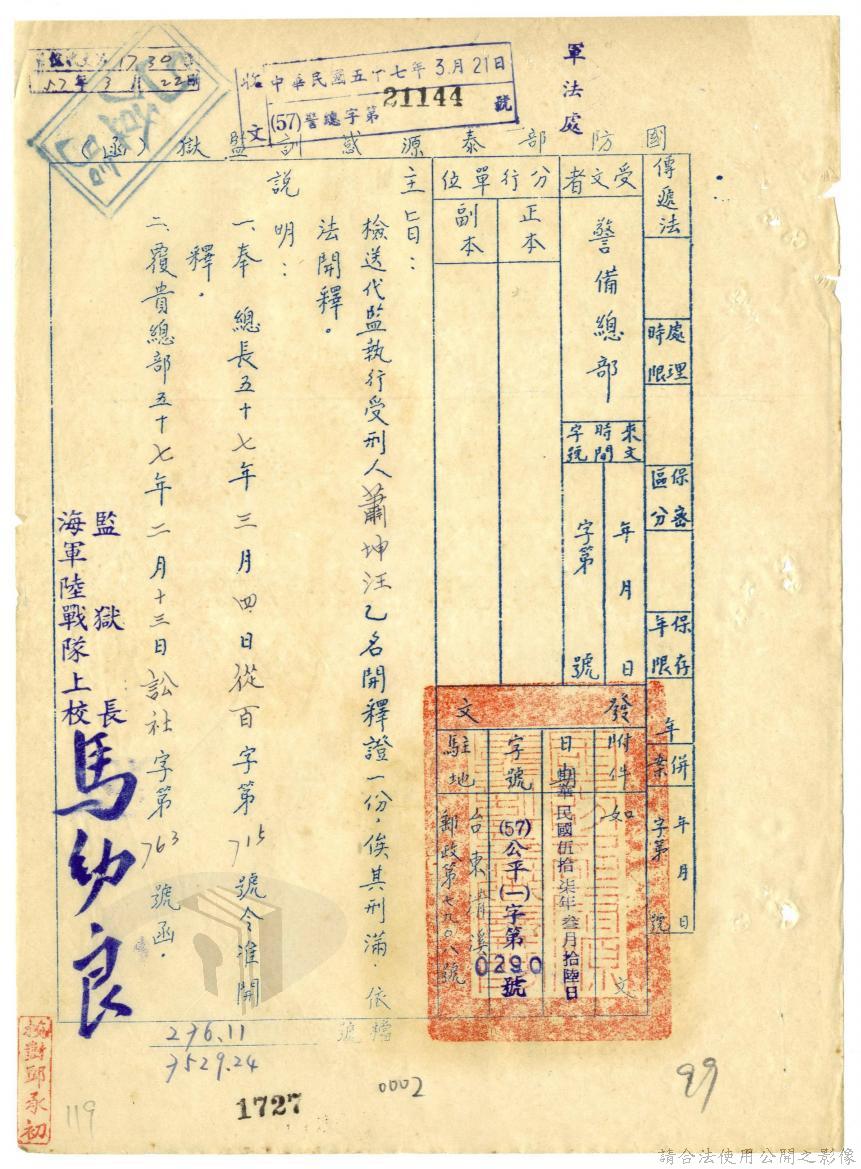 軍法處
收文
中華民國五十七年3月21日
(57)警總字第21144號
1730
57年3月22日
國防部泰源感訓監獄(函)
傳遞法
處理時限
保密區分
保存年限
年
併案
年月日
字第 號
受文者
警備總部
來文
時間
字號
年月日
字第 號
分行單位
正本
副本
發文
附件
如文
日期
中華民國伍拾柒年叁月拾陸日
字號
(57)公平(一)字第0290號
駐地
台東清溪
郵政第七九〇八號
主旨:
檢送代監執行受刑人蕭坤汪乙名開釋證一份,俟其刑滿,依
法開釋。
說明:
一、奉 總長五十七年三月四日從百字第715號令准開
釋.
二、覆貴總部五十七年二月十三日訟社字第763號函.
監獄長
海軍陸戰隊上校
馬幼良
校對邱承初
276.11
7529.24
1727
0002
99
119
請合法使用公開之影像